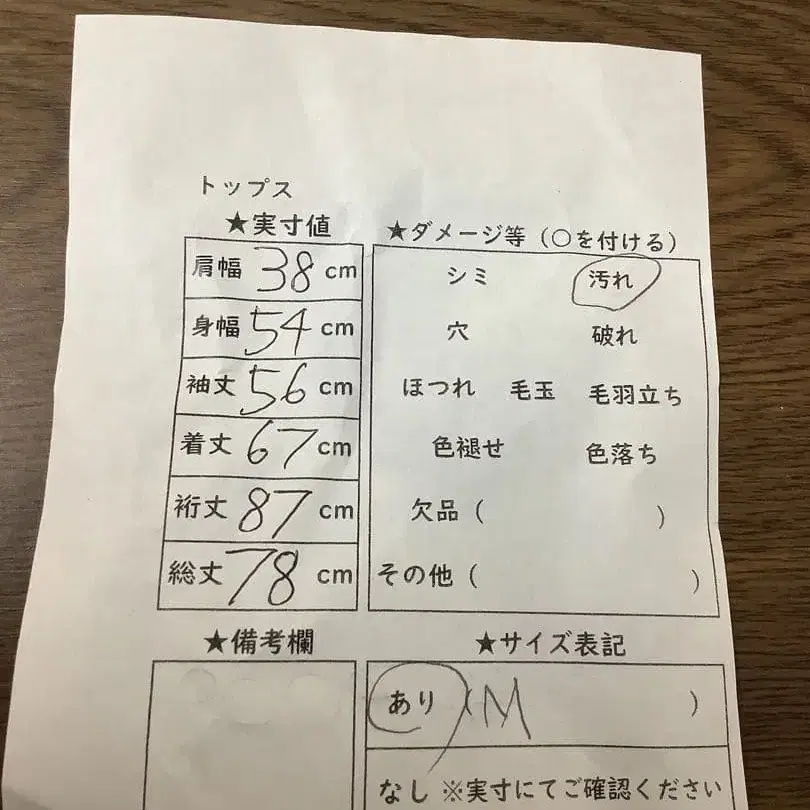 トップス
★実寸値
肩幅 38 cm
身幅 54 cm
袖丈 56 cm
着丈 67 cm
裄丈 87 cm
総丈 78 cm
★ダメージ等（○を付ける）
シミ 汚れ
穴 破れ
ほつれ 毛玉 毛羽立ち
色褪せ 色落ち
欠品（ ）
その他（ ）
★備考欄
★サイズ表記
あり（M ）
なし ※実寸にてご確認ください